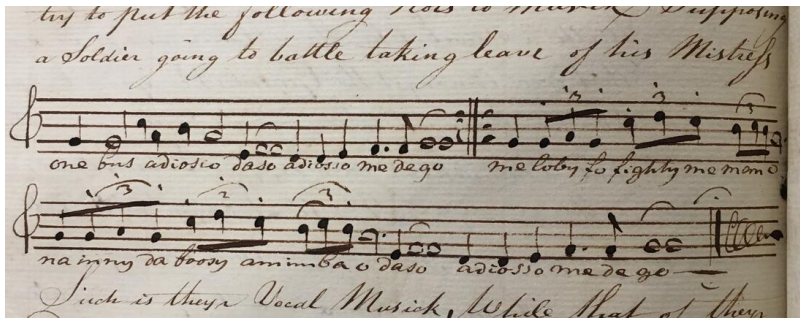 try to put the following Nots to Musick Supposing
a Soldier going to battle taking leave of his Mistress
one bus adiosio daso adiosso me dego me loby fo fighty me mome
na inny da boosy aminba o daso adiosso me de go
Such is theyr Vocal Musick, While that of theyr